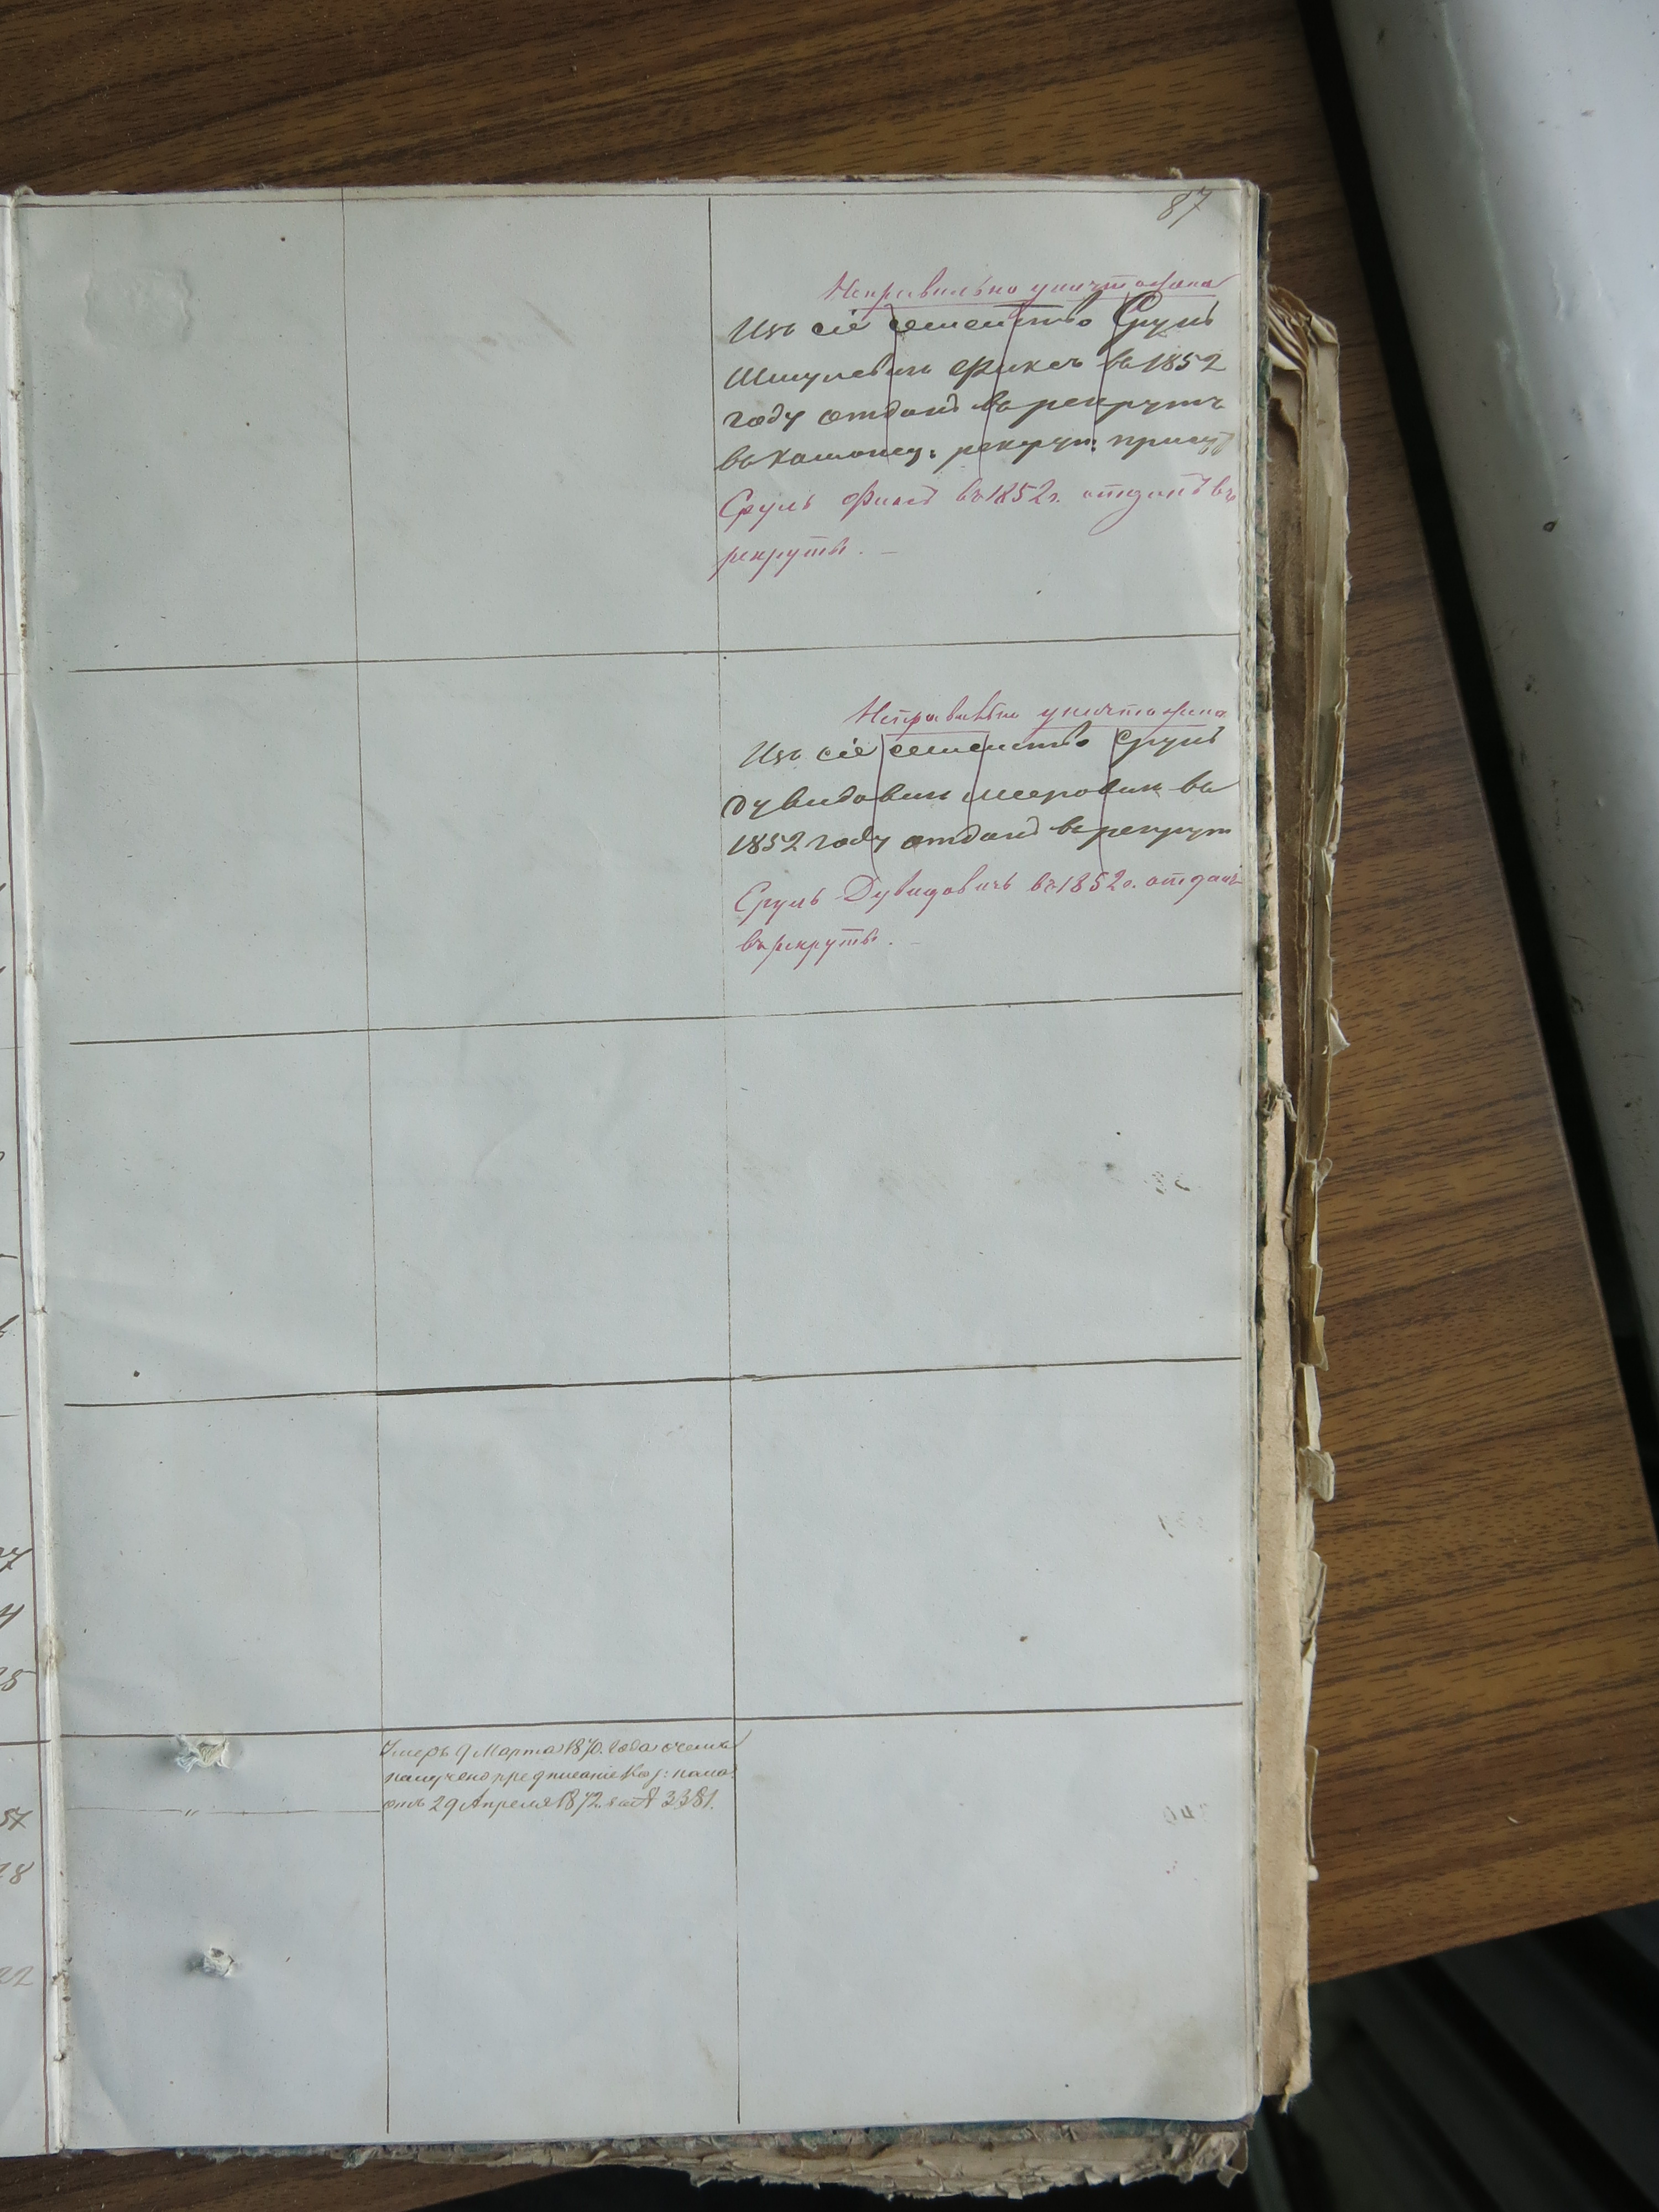 87
Неправильно уничтожена
Изъ сіе семейство Сруль
Шмулевичъ Фиксъ въ 1852
году отданъ въ рекруты
въ рекрут: присут
Сруль Фиксъ въ 1852 г. отданъ въ
рекруты. —
Неправильно уничтожена
Изъ сіе семейство Сруль
Дувидовичъ Мееровичъ въ
1852 году отданъ въ рекрут
Сруль Дувидовичъ въ 1852 г. отданъ
въ рекруты. —
Умеръ 9 Марта 1870. Года о чемъ
получено предписаніе Каз: пала:
отъ 29 Апреля 1872. за № 3381.
57
28
22